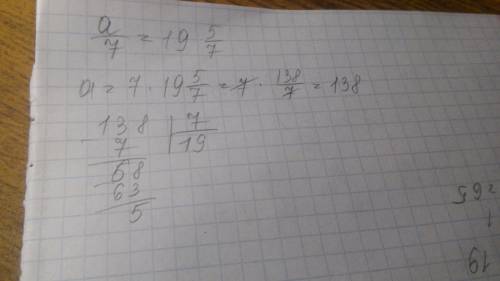 a/7 = 19 5/7
a = 7 · 19 5/7 = 7 · 138/7 = 138
138 | 7
7 | 19
68
63
5
265
1
19